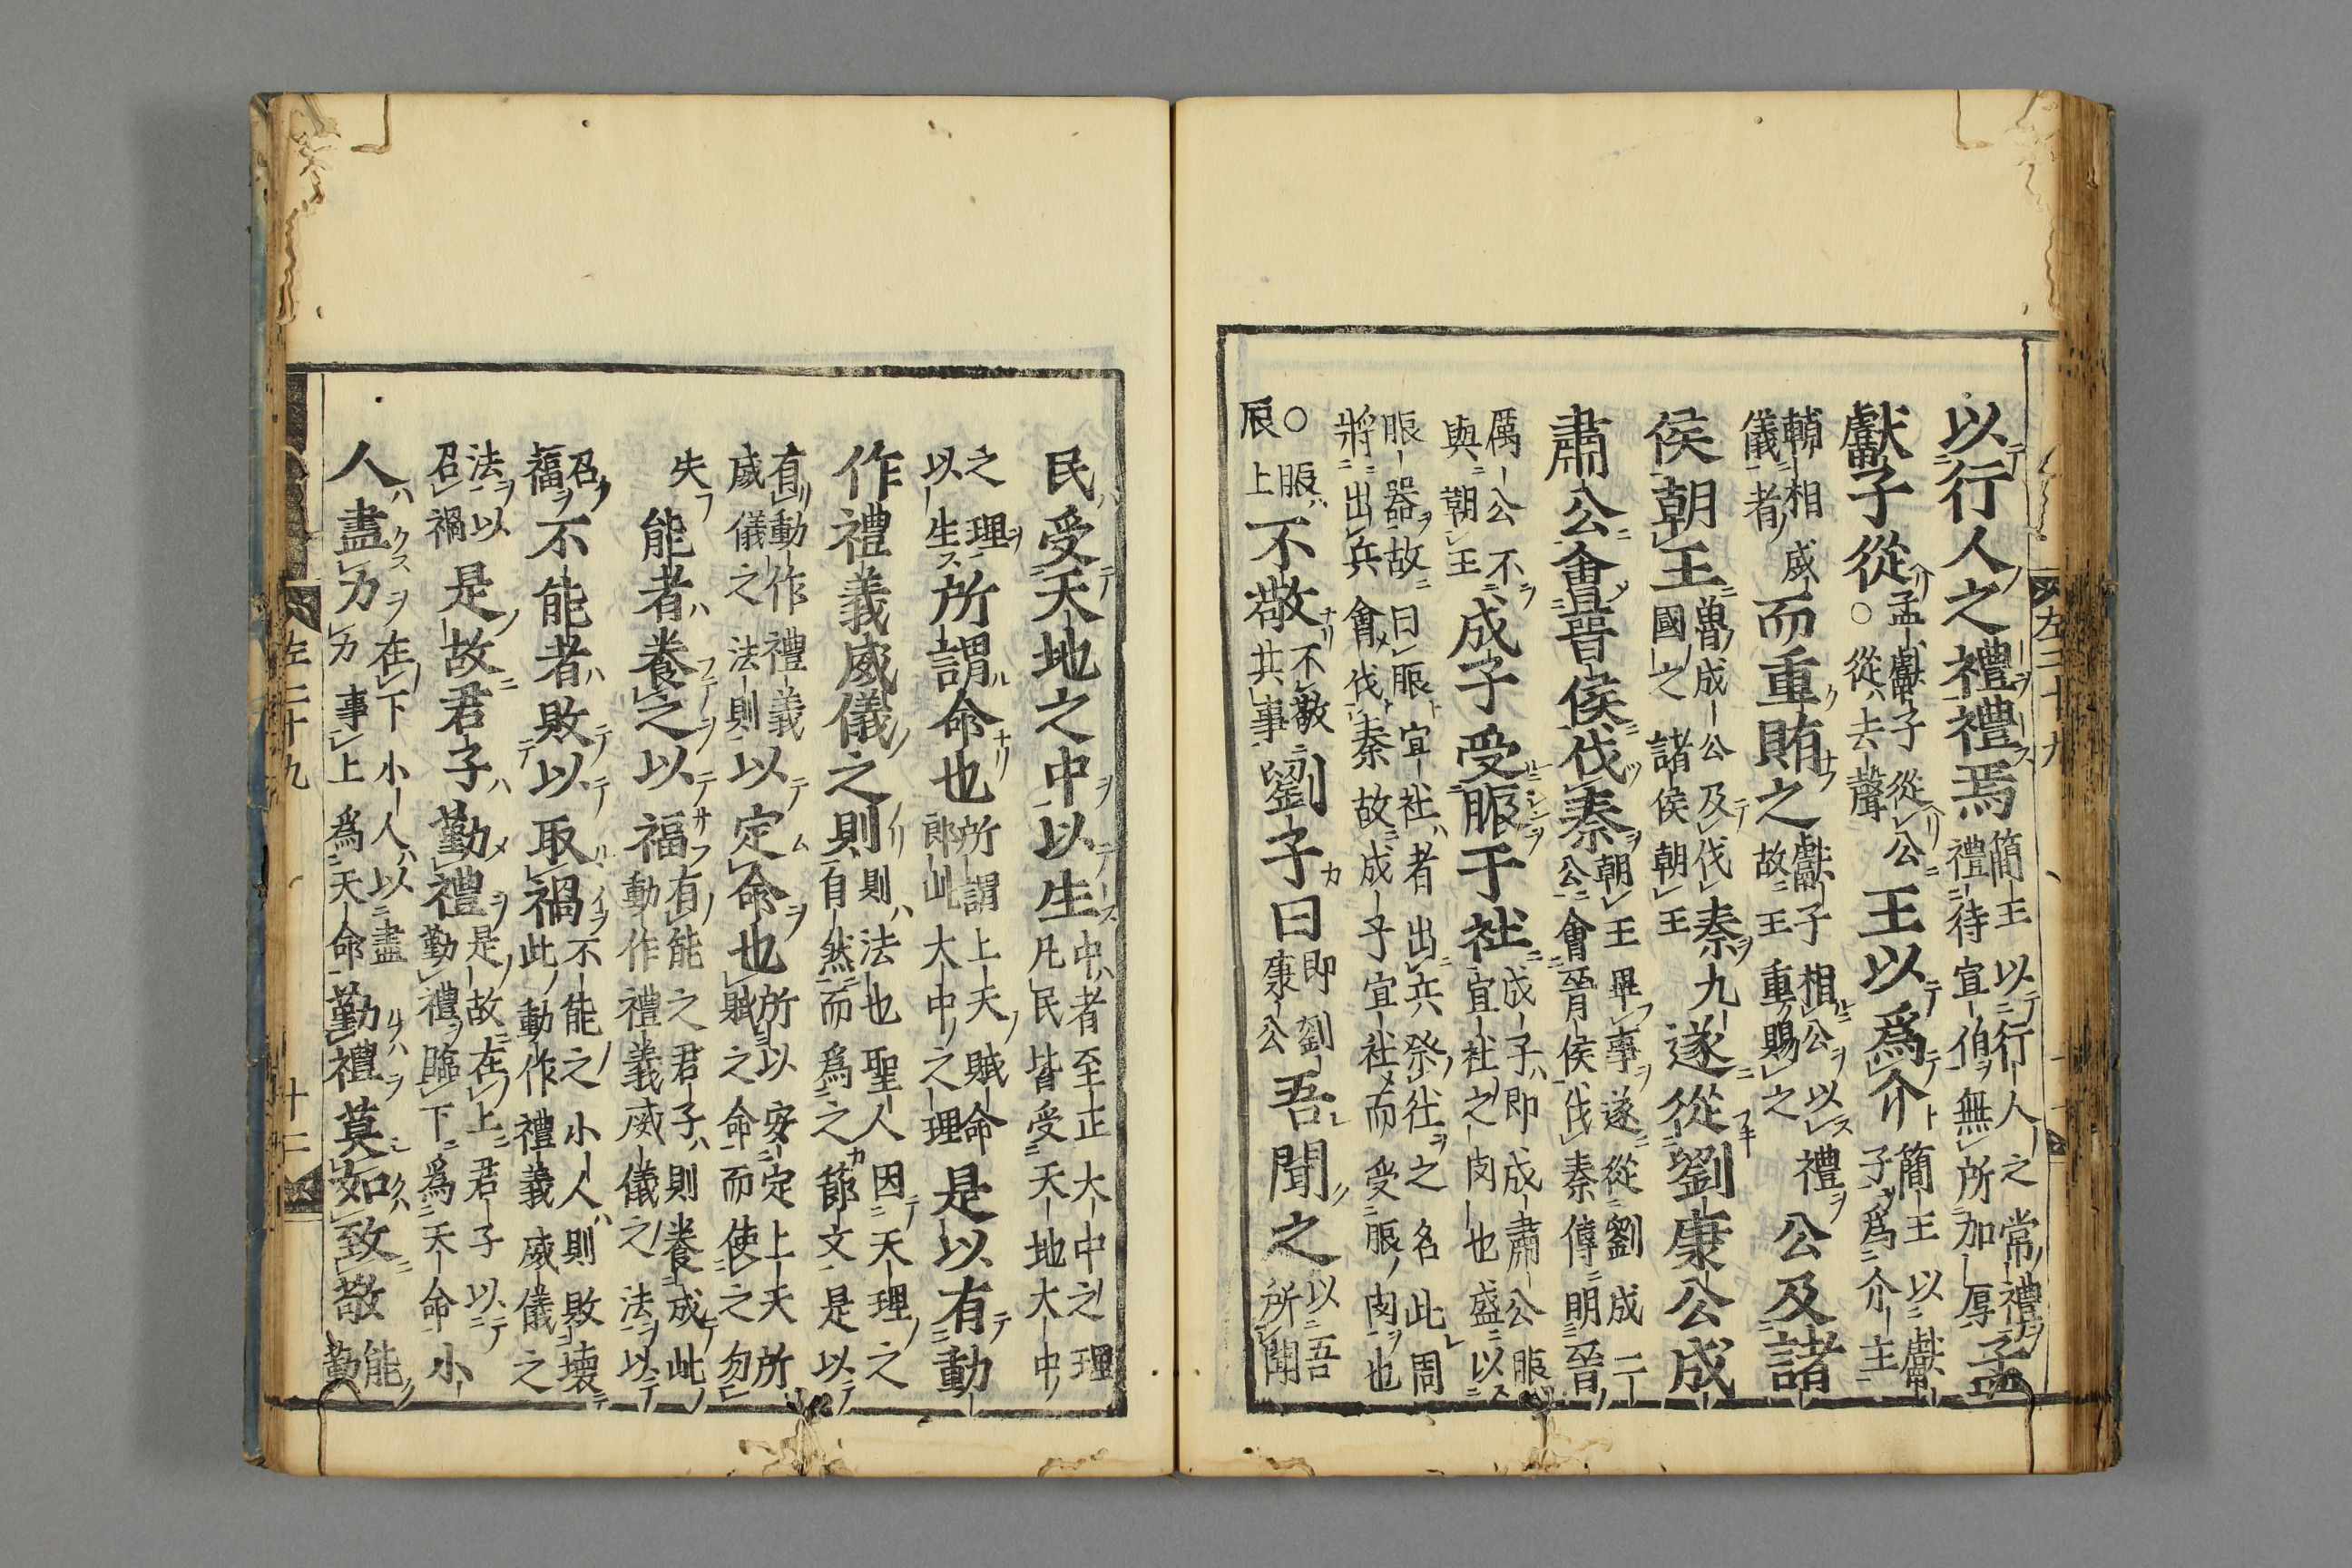 以行人之禮禮焉簡王以行人之常禮禮待宜伯無所加厚孟
獻子從孟獻子從公○從去聲王以爲介簡王以獻子爲介主
輔相威儀者而重賄之獻子相公以禮故王重賜之公及諸
侯朝王魯成公及伐秦九國之諸侯朝王遂從劉康公成
肅公會晉侯伐秦朝王畢事遂從劉成二公會晉侯伐秦傳明晉
厲公不與朝王成子受脤于社成子即成肅公脤宜社之肉也盛以
脤器故曰脤宜社者出兵祭社之名此周將出兵會伐秦故成子宜社而受脤肉也
○脤辰上不敬不敬其事劉子曰即劉康公吾聞之以吾所聞
左二十九
民受天地之中以生中者至正大中之理凡民皆受天地大中
之理以生所謂命也所謂上天賦命即此大中之理是以有動
作禮義威儀之則則法也聖人因天理之自然而爲之節文是以
有動作禮義威儀之法則以定命也所以安定上天所賦之命而使之勿
失能者養之以福有能之君子則養成此動作禮義威儀之法以
召福不能者敗以取禍不能之小人則敗壞此動作禮義威儀之
法以召禍是故君子勤禮是故在上君子以勤禮臨下爲天命小
人盡力在下小人以盡力事上爲天命勤禮莫如致敬能勤
左二十九 十二